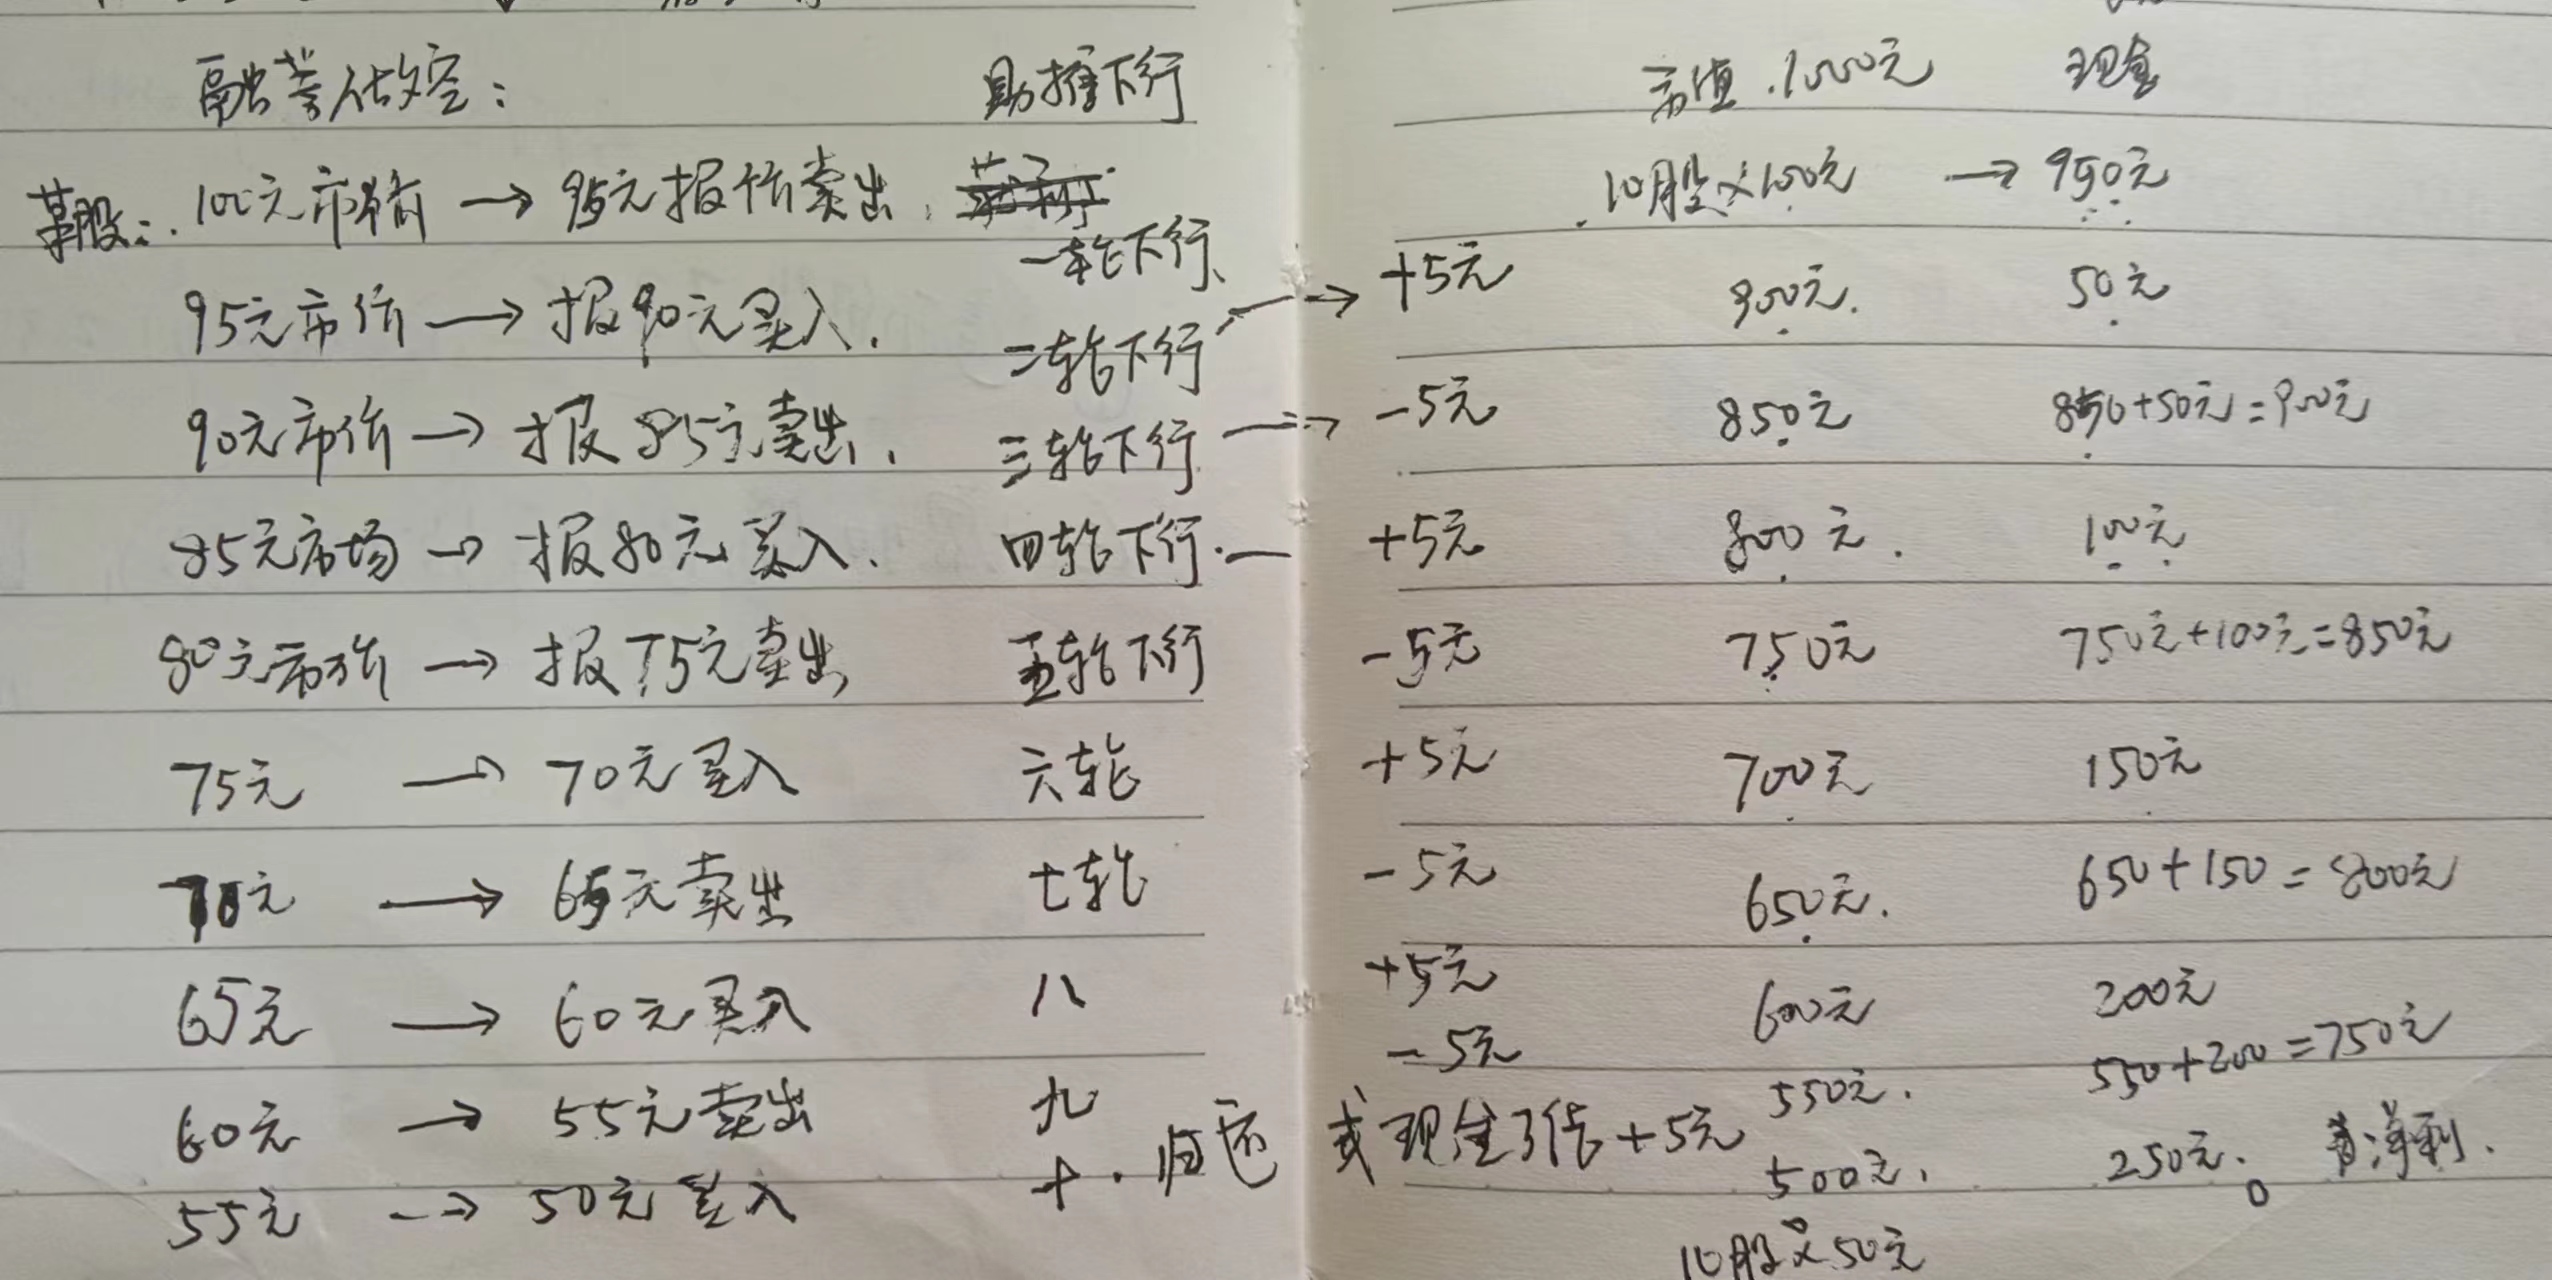 融券做空：　助推下行　市值.1000元　现金
某股：100元市价 → 95元报价卖出，一轮下行、　10股×100元 → 950元
95元市价 → 报90元买入.　二轮下行 → +5元　900元.　50元
90元市价 → 报85元卖出、　三轮下行 → -5元　850元　850+50元=900元
85元市场 → 报80元买入.　四轮下行.— +5元　800元.　100元
80元市价 → 报75元卖出　五轮下行　-5元　750元　750元+100元=850元
75元 → 70元买入　六轮　+5元　700元　150元
70元 → 65元卖出　七轮　-5元　650元.　650+150=800元
65元 → 60元买入　八　+5元　600元　200元
60元 → 55元卖出　九　-5元　550元.　550+200=750元
55元 → 50元买入　十.归还 或现金了借+5元　500元.　250元.　净利.
10股×50元